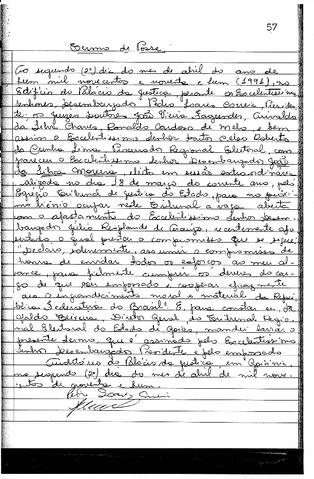 57
Termo de Posse
Ao segundo (2º) dia do mes de abril do ano de
hum mil novecentos e noventa e hum (1991), no
Edifício do Palácio da Justiça, perante os Excelentíssimos
Senhores, Desembargador Pedro Soares Correia, Presiden-
te; os Juízes Doutores João Vieira Fagundes,
da Silva Chaves, Ronaldo Cardoso de Melo, e bem
assim o Excelentíssimo Senhor Doutor Celso Roberto
da Cunha Lima Procurador Regional Eleitoral, com-
pareceu o Excelentíssimo Senhor Desembargador João
da Silva Moreira, eleito em sessão extraordinária
realizada no dia 18 de março do corrente ano, pelo
Egrégio Tribunal de Justiça do Estado, para no próximo
biênio ocupar neste Tribunal a vaga aberta
com o afastamento do Excelentíssimo Senhor Desem-
bargador Júlio Resplande de Araújo, recentemente apo-
sentado, o qual prestou o compromisso que se segue:
"Declaro solenemente assumir o compromisso de
honra de envidar todos os esforços ao meu al-
cance, para fielmente cumprir os deveres do car-
go de que sou empossado e cooperar eficazmente
para o engrandecimento moral e material da Repú-
blica Federativa do Brasil". E, para constar eu,
Bezerra, Diretor Geral do Tribunal Regio-
nal Eleitoral do Estado de Goiás, mandei lavrar o
presente termo, que é assinado pelo Excelentíssimo
Senhor Desembargador Presidente e pelo empossado.
Auditório do Palácio da Justiça, em Goiânia,
ao segundo (2º) dia do mes de abril de mil nove-
centos de noventa e hum.
Pedro Soares Correia